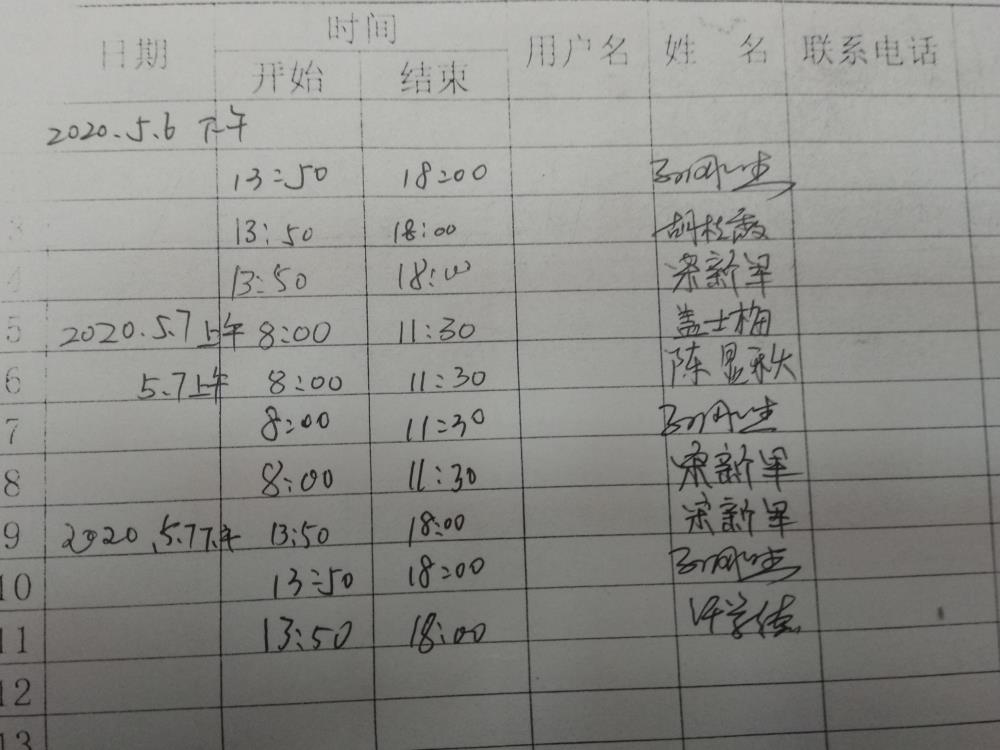 日期 时间 用户名 姓名 联系电话
开始 结束
2020.5.6 下午
13:50 18:00
3 13:50 18:00 胡桂霞
4 13:50 18:00 梁新军
5 2020.5.7上午 8:00 11:30 盖士梅
6 5.7上午 8:00 11:30 陈显秋
7 8:00 11:30
8 8:00 11:30 梁新军
9 2020.5.7下午 13:50 18:00 梁新军
10 13:50 18:00
11 13:50 18:00
12
13